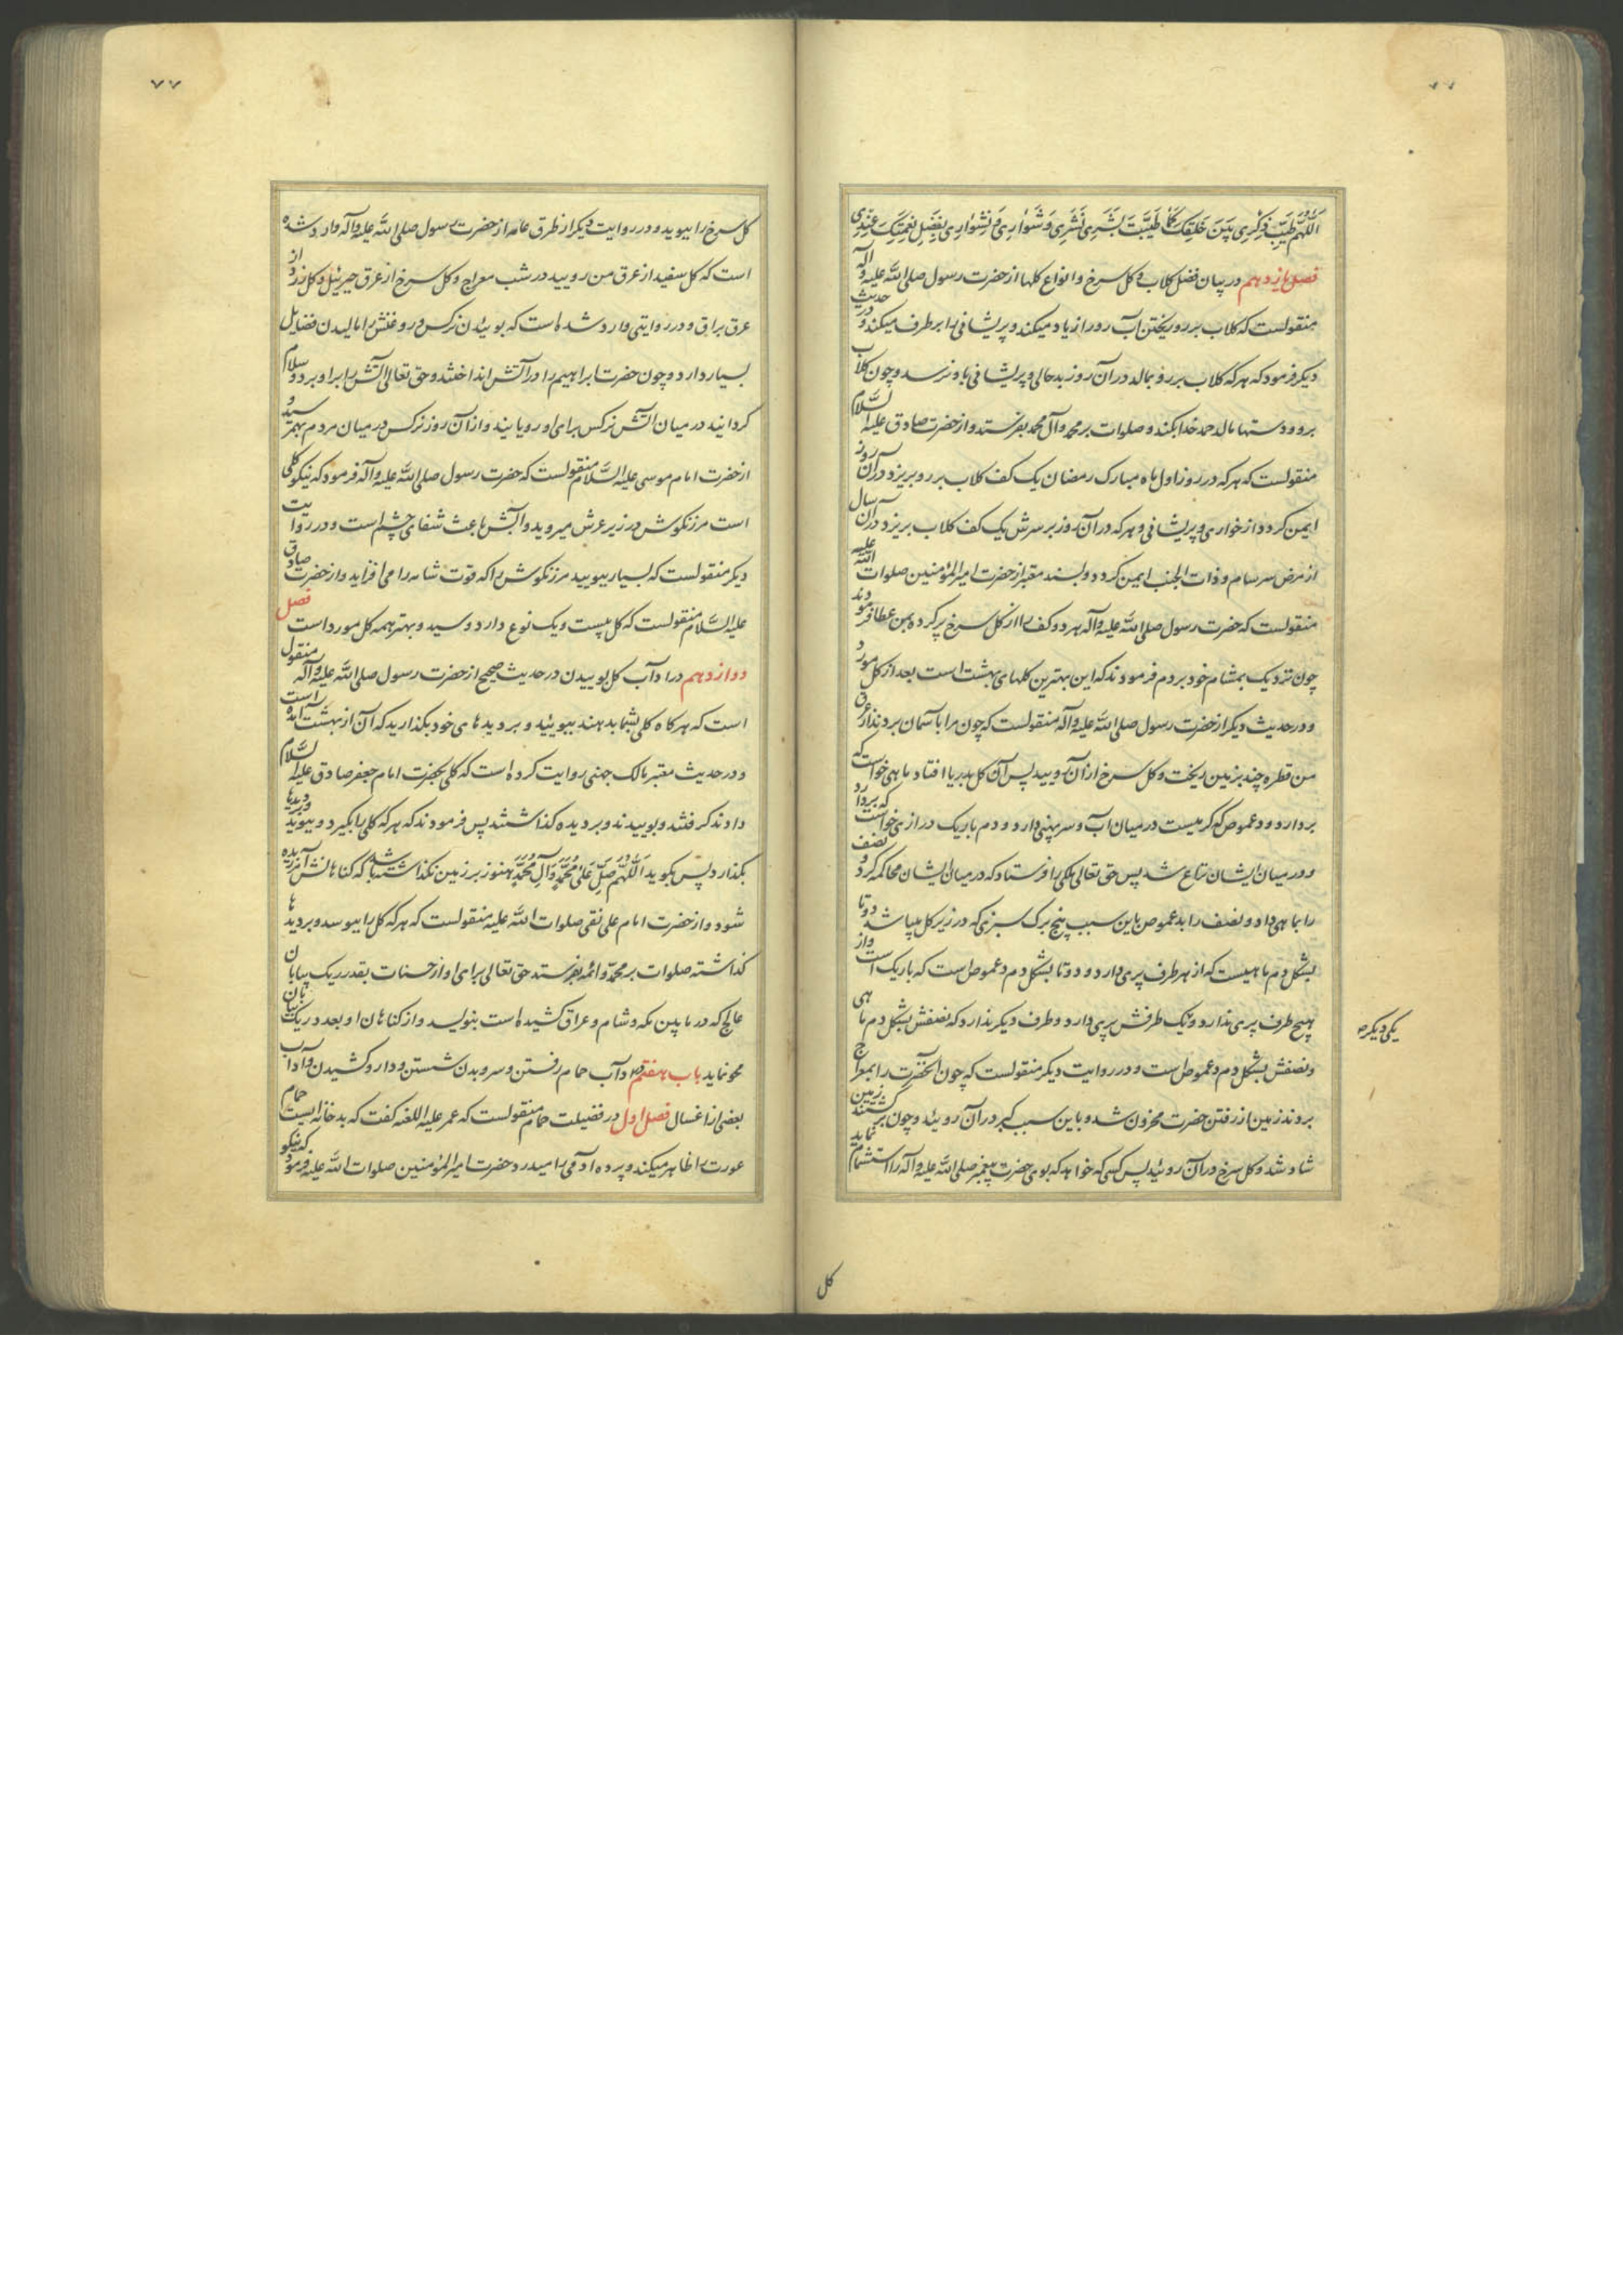 اَللّهُمَّ طَیِّب ذِکرِی بَینَ خَلقِکَ کَما طَیَّبتَ بَشَرِی نَشرِی وَشَوارِی وَ نِشوارِی بِفَضلِ نِعمَتِکَ عِندِی
فصل یازدهم در بیان فضل کلاب و کل سرخ و انواع کلها از حضرت رسول صلی الله علیه و آله
منقولست که کلاب بر رو ریختن آب رو را زیاد میکند و پریشانی را برطرف میکند و در حدیث
دیکر فرمود که هر که کلاب بر رو بمالد در آن روز بدحالی و پریشانی باو نرسد و چون کلاب
برو و دستها بمالد حمد خدا بکند و صلوات بر محمد و آل محمد بفرستد و از حضرت صادق علیه السلام
منقولست که هر که در روز اول ماه مبارک رمضان یک کف کلاب بر رو بریزد در آن روز
ایمن کردد از خواری و پریشانی و هر که در آن روز بر سرش یک کف کلاب بریزد در آن سال
از مرض سرسام و ذات الجنب ایمن کردد و بسند معتبر از حضرت امیر المؤمنین صلوات الله علیه
منقولست که حضرت رسول صلی الله علیه و آله هر دو کف را از کل سرخ پر کرده بمن عطا فرمودند
چون نزدیک بمشام خود بردم فرمودند که این بهترین کلهای بهشت است بعد از کل مورد
و در حدیث دیکر از حضرت رسول صلی الله علیه و آله منقولست که چون مرا باسمان بردند از عرق
من قطره چند بزمین ریخت و کل سرخ از آن رویید پس آن کل بدریا افتاد ماهی خواست که
بردارد و دعموص که کرمیست در میان آب و سر پهنی دارد و دم باریک درازی خواست که بردارد
و در میان ایشان نزاع شد پس حق تعالی ملکی را فرستاد که در میان ایشان محاکمه کرد و نصف
را بماهی داد و نصف را بدعموص باین سبب پنج برک سبزی که در زیر کل میباشد دو تا
بشکل دم ماهیست که از هر طرف پری دارد و دو تا بشکل دم دعموص است که باریک است و از
هیچ طرف پری ندارد و یک طرفش پری دارد و طرف دیکر ندارد که نصفش بشکل دم ماهی
یکی دیکر
و نصفش بشکل دم دعموص است و در روایت دیکر منقولست که چون آنحضرت را بمعراج
بردند زمین از رفتن حضرت محزون شد و باین سبب کبر در آن رویید و چون بزمین برکشتند
شاد شد و کل سرخ در آن رویید پس کسی که خواهد که بوی حضرت پیغمبر صلی الله علیه و آله را استشمام نماید
کل
۷۷
کل سرخ را ببوید و در روایت دیکر از طرق عامه از حضرت رسول صلی الله علیه و آله وارد شده
است که کل سفید از عرق من رویید در شب معراج و کل سرخ از عرق جبرئیل و کل زرد از
عرق براق و در روایتی وارد شده است که بوئیدن نرکس و روغنش را مالیدن فضایل
بسیار دارد و چون حضرت ابراهیم را در آتش انداختند و حق تعالی آتش را بر او برد و سلام
کردانید در میان آتش نرکس برای او رویانید و از آن روز نرکس در میان مردم بهم رسید و
از حضرت امام موسی علیه السلام منقولست که حضرت رسول صلی الله علیه و آله فرمود که نیکو کلی
است مرزنکوش در زیر عرش میروید و آبش باعث شفای چشم است و در روایت
دیکر منقولست که بسیار ببویید مرزنکوش را که قوت شامه را می افزاید و از حضرت صادق
علیه السلام منقولست که کل بیست و یک نوع دارد و سید و بهتر همه کل مورد است فصل
دوازدهم در اداب کل بوییدن در حدیث صحیح از حضرت رسول صلی الله علیه و آله منقول
است که هر کاه کلی بشما بدهند ببوئید و بر دیدهای خود بکذارید که آن از بهشت آمده است
و در حدیث معتبر مالک جهنی روایت کرده است که کلی بحضرت امام جعفر صادق علیه السلام
دادند کرفتند و بوییدند و بر دیده کذاشتند پس فرمودند که هر که کلی را بکیرد و ببوید و بر دیدها
بکذارد پس بکوید اَللّهُمَّ صَلِّ عَلی مُحَمَّدٍ وَآلِ مُحَمَّدٍ هنوز بر زمین نکذاشته باشد که کناهانش آمرزیده
شود و از حضرت امام علی نقی صلوات الله علیه منقولست که هر که کل را ببوسد و بر دیدها
کذاشته صلوات بر محمد و ائمه بفرستد حق تعالی برای او از حسنات بقدر ریک بیابان
عالج که در مابین مکه و شام و عراق کشیده است بنویسد و از کناهان او بعدد ریک بیابان
محو نماید باب هفتم در اداب حمام رفتن و سر و بدن شستن و دارو کشیدن و آداب
بعضی از اغسال فصل اول در فضیلت حمام منقولست که عمر علیه اللعنه کفت که بد خانه ایست حمام
عورت را ظاهر میکند و پرده ادمی را میدرد حضرت امیر المؤمنین صلوات الله علیه فرمود که نیکو